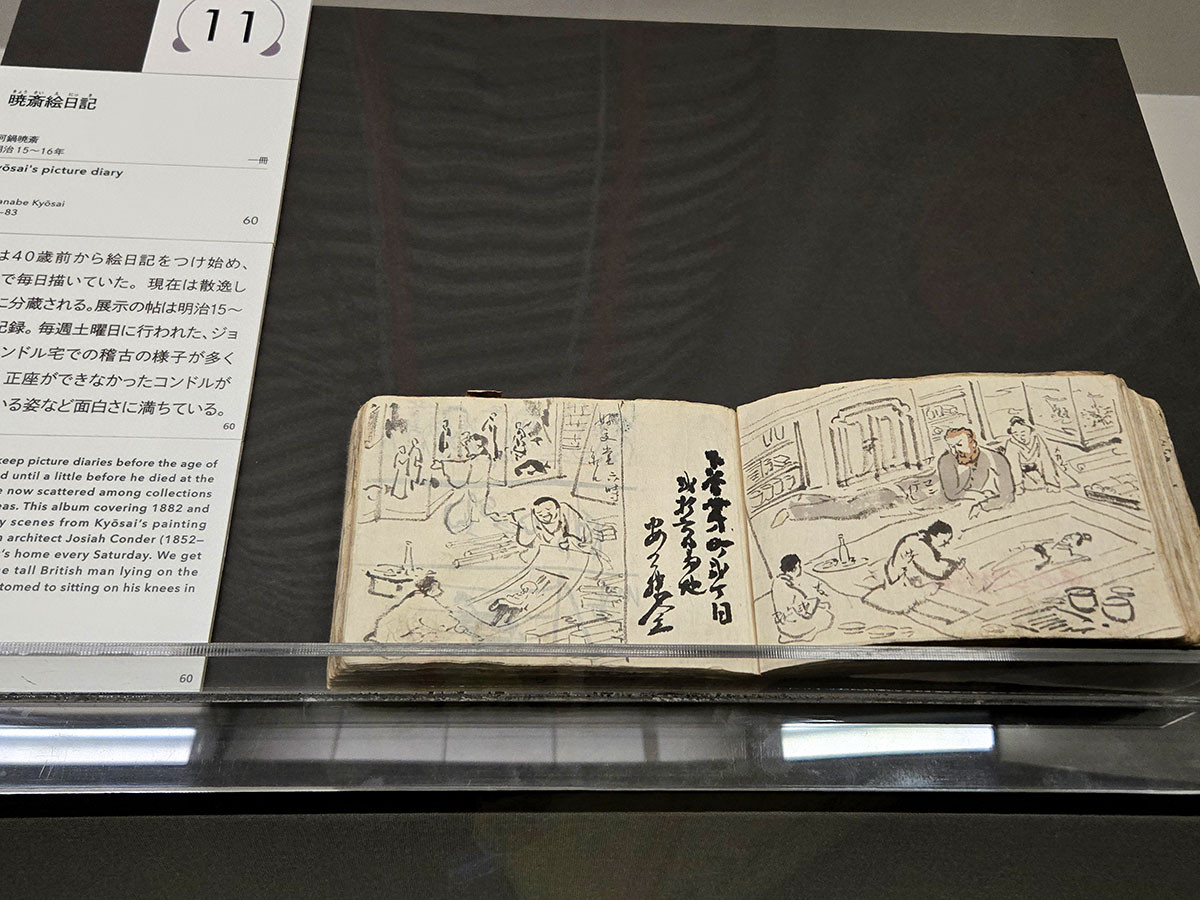 11
きょうさいえにっき
暁斎絵日記
河鍋暁斎
明治15〜16年
一冊
yōsai's picture diary
anabe Kyōsai
–83
60
は40歳前から絵日記をつけ始め、
で毎日描いていた。現在は散逸し
に分蔵される。展示の帖は明治15〜
記録。毎週土曜日に行われた、ジョ
ンドル宅での稽古の様子が多く
正座ができなかったコンドルが
いる姿など面白さに満ちている。
60
keep picture diaries before the age of
d until a little before he died at the
e now scattered among collections
eas. This album covering 1882 and
y scenes from Kyōsai's painting
n architect Josiah Conder (1852–
's home every Saturday. We get
e tall British man lying on the
tomed to sitting on his knees in
60